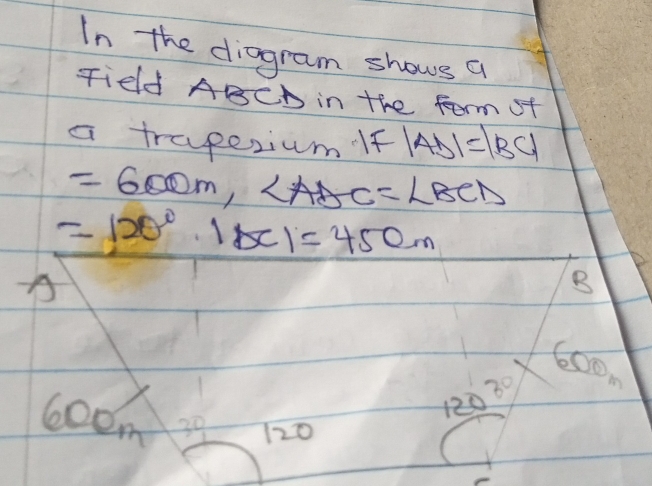 In the diagram shows a
Field ABCD in the form of
a trapezium If |AD|=|BC|
= 600m, ∠ADC=∠BCD
= 120°. |DC|= 450m
A B
600m
120 30
600m 30 120
C